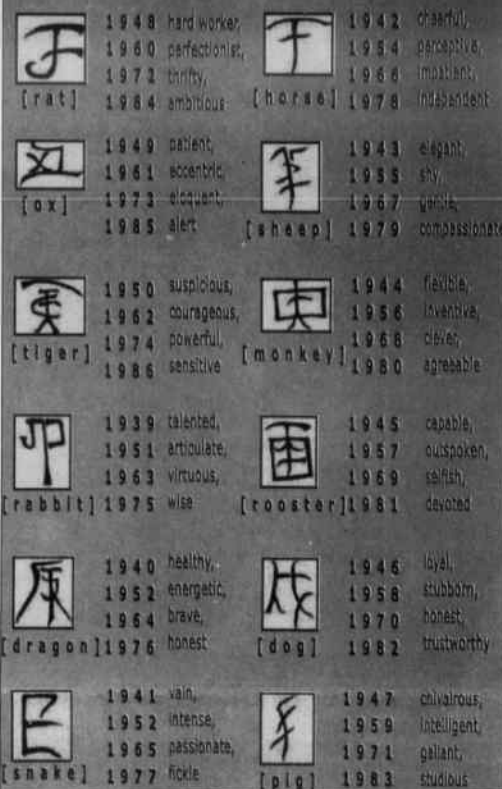 子
1948 hard worker,
1960 perfectionist,
1972 thrifty,
1984 ambitious
[rat]
丑
1949 patient,
1961 eccentric,
1973 eloquent,
1985 alert
[ox]
寅
1950 suspicious,
1962 courageous,
1974 powerful,
1986 sensitive
[tiger]
卯
1939 talented,
1951 articulate,
1963 virtuous,
1975 wise
[rabbit]
辰
1940 healthy,
1952 energetic,
1964 brave,
1976 honest
[dragon]
巳
1941 vain,
1952 intense,
1965 passionate,
1977 fickle
[snake]
午
1942 cheerful,
1954 perceptive,
1966 impatient,
1978 independent
[horse]
1943 elegant,
1955 shy,
1967 gentle,
1979 compassionate
[sheep]
1944 flexible,
1956 inventive,
1968 clever,
1980 agreeable
[monkey]
1945 capable,
1957 outspoken,
1969 selfish,
1981 devoted
[rooster]
戌
1946 loyal,
1958 stubborn,
1970 honest,
1982 trustworthy
[dog]
1947 chivalrous,
1959 intelligent,
1971 gallant,
1983 studious
[pig]